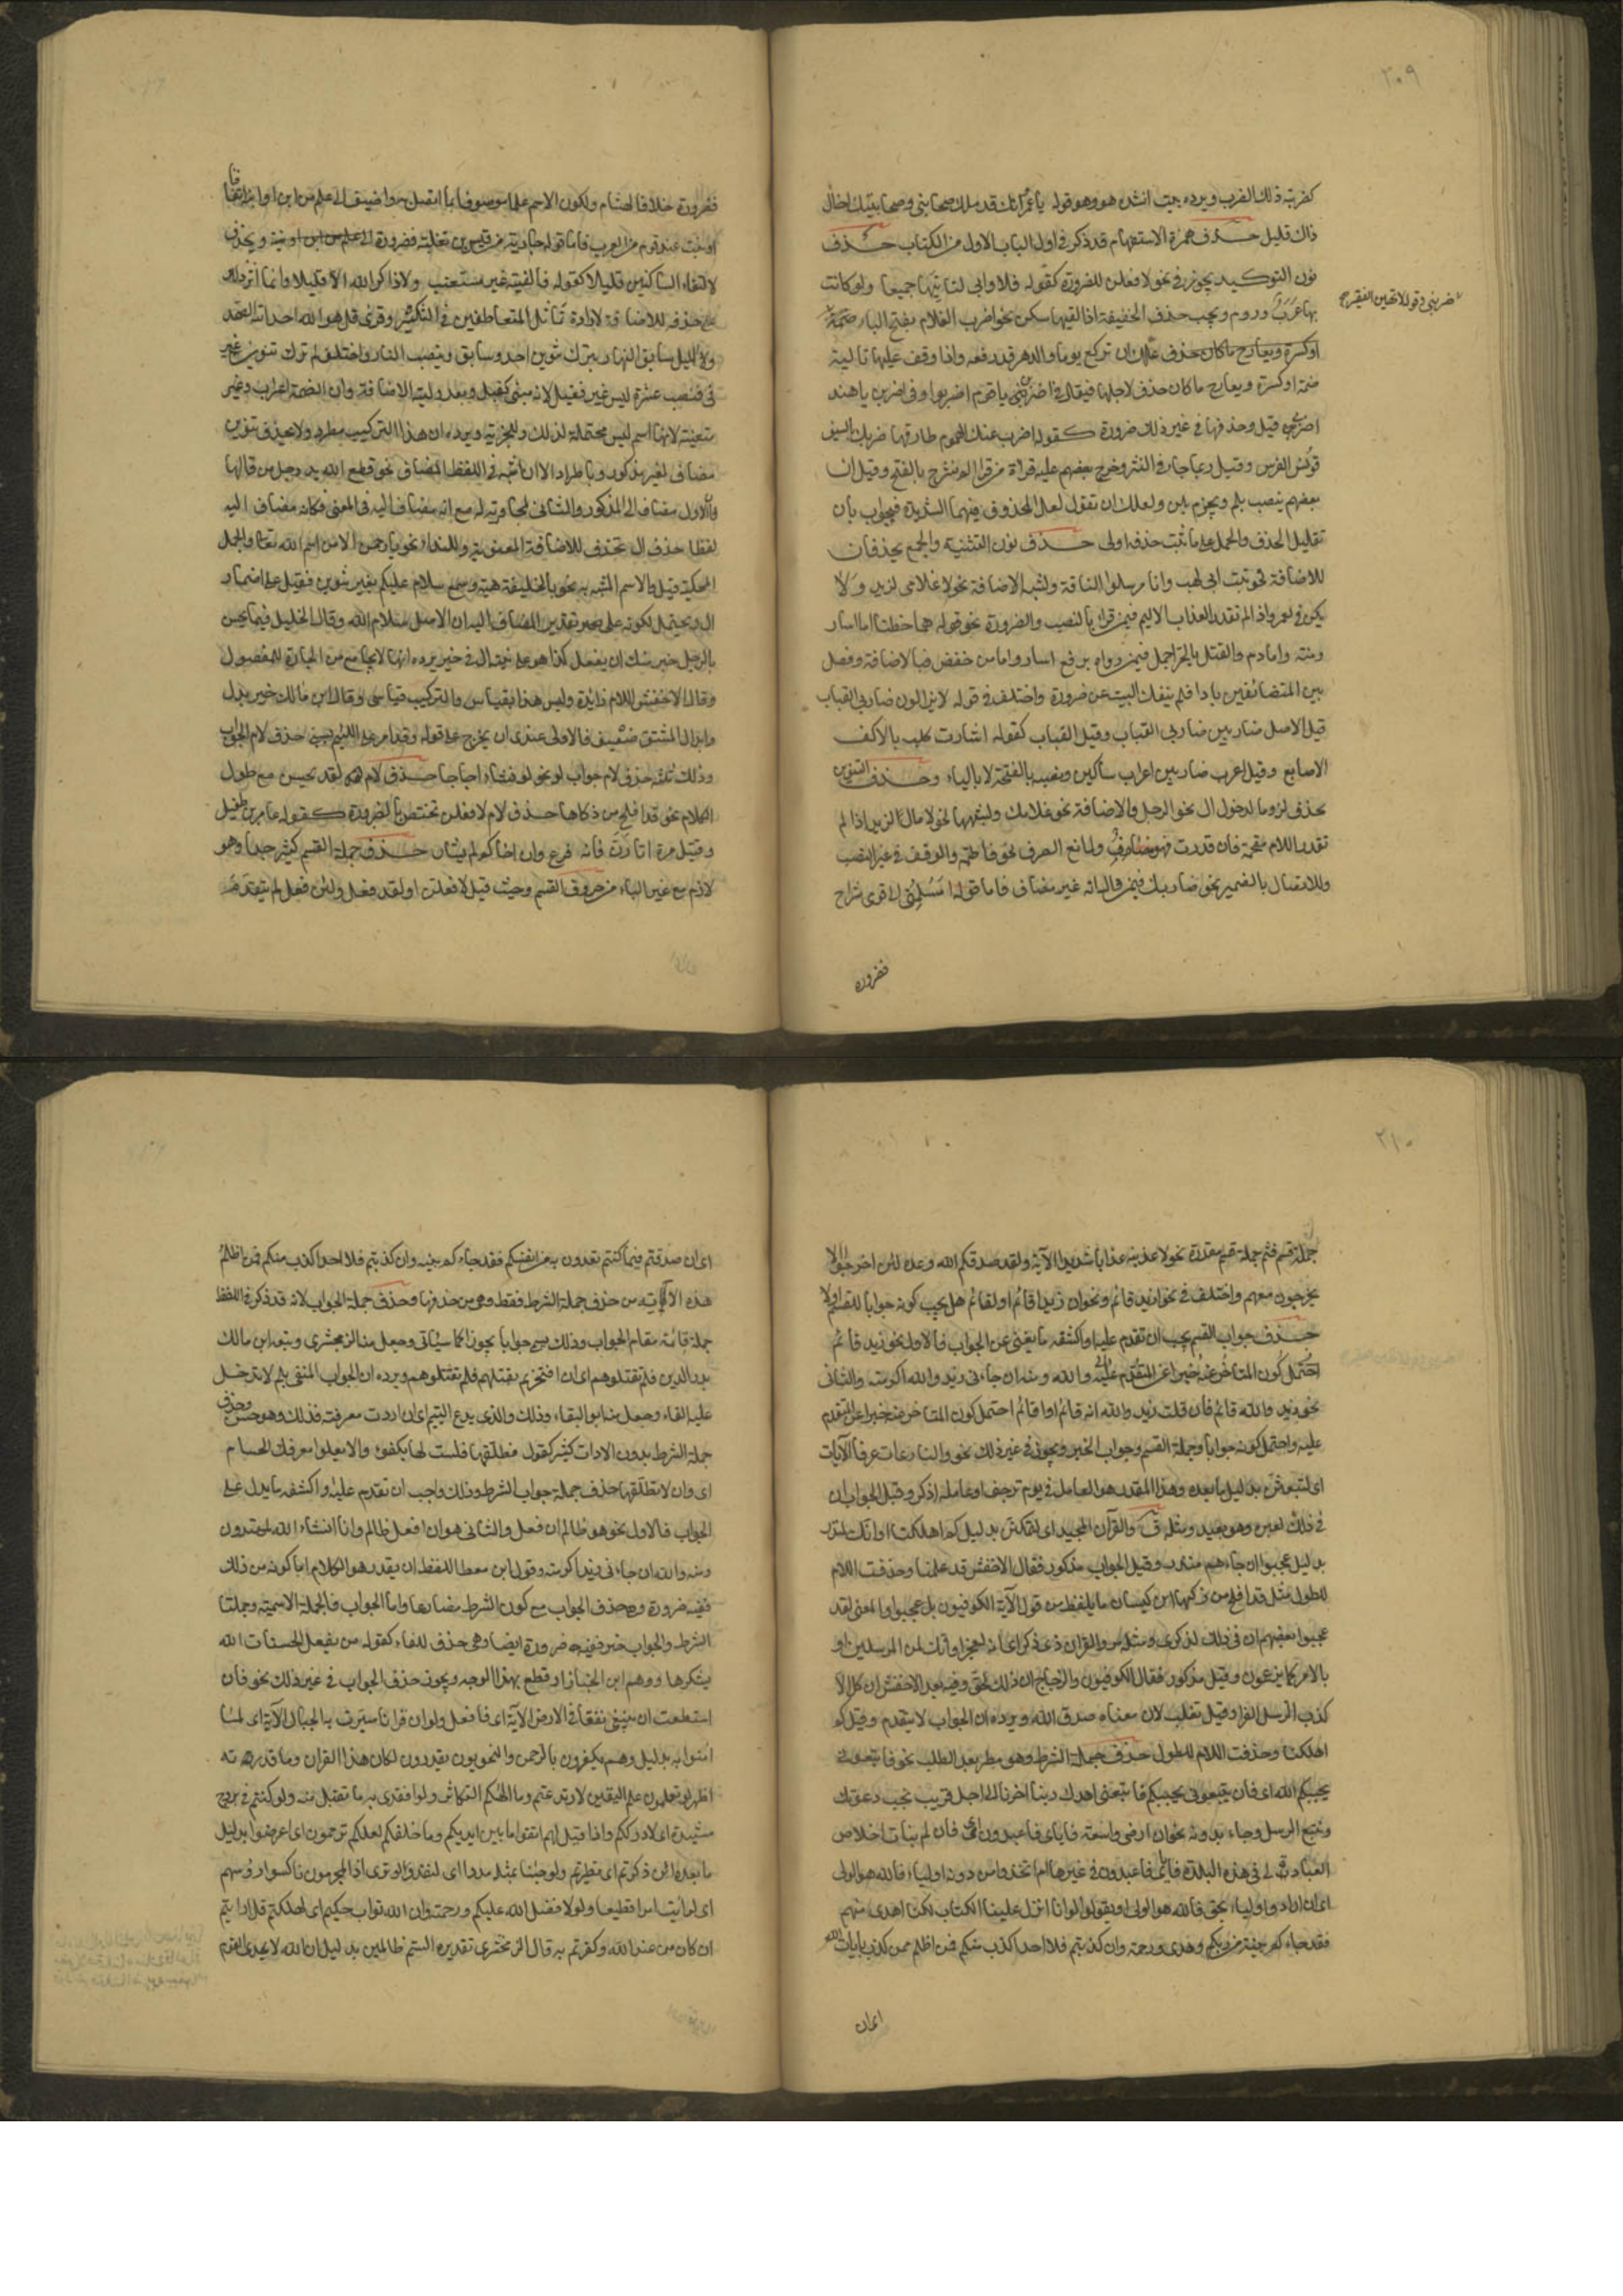 ٣٠٩
كضربته ذلك الضرب ويرده بيت انشده هو وهو قوله يا عمرو انك قد مللت صحابتى وصحابتيك اخال
ذاك قليل حذف همزة الاستفهام قد ذكر فى اول الباب الاول من الكتاب حذف
نون التوكيد يجوز فى نحو لافعلن للضرورة كقوله فلا وابى لناتيها جميعا ولو كانت
بها عرب وروم ويجب حذف الخفيفة اذا لقيها ساكن نحو اضرب الغلام بفتح الباء
ضمة او كسرة ويعاد ما كان حذف لاجلها فيقال فى اضربن يا قوم اضربوا وفى اضربن يا هند
اضربى قيل وحذفها فى غير ذلك ضرورة كقوله اضرب عنك الهموم طارقها ضربك بالسيف
قونس الفرس وقيل ربما جاء فى النثر وخرج بعضهم عليه قراة من قرا الم نشرح بالفتح وقيل ان
بعضهم ينصب بلم ويجزم بلن ولعلك ان تقول لعل المحذوف فيهما الشديدة فيجاب بان
تقليل الحذف والحمل على ما ثبت حذفه اولى حذف نون التثنية والجمع يحذفان
للاضافة نحو تبت يدا ابى لهب وانا مرسلوا الناقة ولشبه الاضافة نحو لا غلامى لزيد ولا
ومنة وامادم والقتل بالحر اجمل فيمن رواه برفع اسار وامامن خفض فبالاضافة وفصل
بين المتضائفين باما فلم ينفك البيت عن ضرورة واختلف فى قوله لا يزالون ضاربى القباب
قيل الاصل ضاربين ضاربى القباب وقيل القباب كقوله اشارت كليب بالاكف
الاصابع وقيل اعرب ضاربين اعراب ساكين ونصبه بالفتحة لا بالياء وحذف التنوين
يحذف لزوما لدخول ال نحو الرجل والاضافة نحو غلامك ولشبهها نحو لا مال لزيد اذا لم
تقدر اللام مقحمة فان قدرت فهو مضاف ولمانع الصرف نحو فاطمة والوقف فى غير النصب
وللاتصال بالضمير نحو ضاربك فيمن قال انه غير مضاف فاما قوله امسلمنى الى قومى شراح
فضرورة
فضرورة خلافا لهشام ولكون الاسم علما موصوفا بما اتصل به واضيف الى علم من ابن او ابنة اتفاقا
لالتقاء الساكنين قليلا كقوله فالفيته غير مستعتب ولا ذاكر الله الا قليلا وانما اثر ذلك
على حذفه للاضافة لارادة تماثل المتعاطفين فى التنكير وقرى قل هو الله احد الله الصمد
ولا الليل سابق النهار بترك تنوين احد وسابق وبنصب النهار واختلف لم ترك تنوين غير
مضاف لغير مذكور وباطراد الا ان اشبه فى اللفظ المضاف نحو قطع الله يد ورجل من قالها
فالاول مضاف الى المذكور والثانى لمجاورته له مع انه المضاف اليه فى المعنى فكانه مضاف اليه
لفظا حذف ال تحذف للاضافة المعنوية وللنداء نحو يا رحمن الا من اسم الله تعالى والجمل
المحكية قيل والاسم المشبه به نحو يا الخليفة هيبة وسمع سلام عليكم بغير تنوين فقيل على اضمار
ال ويحتمل لكونه على تقدير المضاف اليه ان الاصل سلام الله وقال الخليل فيما يحسن
بالرجل خير منك ان يفعل كذا هو على نية ال فى خير ويرده انها لا تجامع من الجارة للمفضول
وقال الاخفش اللام زائدة وليس هذا بقياس والتركيب قياسى وقال ابن مالك خير بدل
وابدال المشتق ضعيف فالاولى عندى ان يخرج على قوله ولقد امر على اللئيم يسبنى حذف لام الجواب
وذلك ثلثة حذف لام جواب لو نحو لو نشاء جعلناه اجاجا حذف لام لقد يحسن مع طول
الكلام نحو قد افلح من زكاها حذف لام لافعلن تختص بالضرورة كقوله عامر بن طفيل
وقتيل مرة اثارن فانه فرع وان اخاكم لم يثار حذف جملة القسم كثير جدا وهو
لازم مع غير الباء من حروف القسم وحيث قيل لافعلن او لقد فعل ولئن فعل لم يتقدمه
٣١٠
جملة قسم فثم جملة قسم مقدرة نحو لاعذبنه عذابا شديدا الآية ولقد صدقكم الله وعده لئن اخرجوا لا
يخرجون معهم واختلف فى نحو لزيد قائم ونحو ان زيدا قائم او لقائم هل يجب كونه جوابا للقسم اولا
حذف جواب القسم يجب ان تقدم عليه او اكتنفه ما يغنى عن الجواب فالاول نحو زيد قائم
نحو زيد والله قائم فان قلت زيد والله انه قائم او لقائم احتمل كون المتاخر عنه خبرا عن المتقدم
عليه واحتمل كونه جوابا وجملة القسم وجواب الخبر ويجوز فى غير ذلك نحو والنازعات غرقا الآيات
اى لتبعثن بدليل ما بعده وهذا المقدر هو العامل فى يوم ترجف او عامله اذكر وقيل الجواب ان
فى ذلك لعبرة وهو بعيد ومثله ق والقرآن المجيد اى لتهلكن بدليل كم اهلكنا او انك لمنذر
بدليل عجبوا ان جاءهم منذر وقيل الجواب مذكور فقال الاخفش قد علمنا وحذفت اللام
للطول مثل قد افلح من زكيها ابن كيسان ما يلفظ من قول الآية الكوفيون بل عجبوا والمعنى لقد
عجبوا بعضهم ان فى ذلك لذكرى ومثله ص والقران ذى ذكر اى انه لمعجز او انك لمن المرسلين او
بالامر كما يزعمون وقيل مذكور فقال الكوفيون والزجاج ان ذلك لحق وفيه بعد الاخفش ان كل الا
كذب الرسل الفرا وثعلب ص لان معناه صدق الله ويرده ان الجواب لا يتقدم وقيل كم
اهلكنا وحذفت اللام للطول حذف جملة الشرط وهو مطرد بعد الطلب نحو فاتبعونى
يحببكم الله اى فان تتبعونى يحببكم فاتبعنى اهدك ربنا اخرنا الى اجل قريب نجب دعوتك
ونتبع الرسل وجاء بدونه نحو ان ارضى واسعة فاياى فاعبدون اى فان لم يتات اخلاص
العبادة لى فى هذه البلدة فاياى فاعبدون فى غيرها ام اتخذوا من دونه اولياء فالله هو الولى
اى ان ارادوا اولياء بحق فالله هو الولى او تقولوا لو انا انزل علينا الكتاب لكنا اهدى منهم
فقد جاءكم بينة من ربكم وهدى ورحمة وان كذبتم فلا احد اكذب منكم فمن اظلم ممن كذب بايات الله
اى ان
اى ان صدقتم فيما كنتم تعدون به من انفسكم فقد جاءكم بينة وان كذبتم فلا احد اكذب منكم فمن اظلم
هذه الآية من حذف جملة الشرط فقط وهى من حذفها وحذف جملة الجواب لانه قد ذكر فى اللفظ
جملة قائمة مقام الجواب وذلك يسمى جوابا تجوزا كما سياتى وجعل منه الزمخشرى وتبعه ابن مالك
بدر الدين فلم تقتلوهم اى ان افتخرتم بقتلهم فلم تقتلوهم ويرده ان الجواب المنفى بلم لا تدخل
عليه الفاء وجعل منه ابو البقاء وذلك الذى يدع اليتيم اى ان اردت معرفته فذلك وهو حسن وحذف
جملة الشرط بدون الادات كثير كقوله فطلقها فلست لها بكفؤ والا يعل مفرقك الحسام
اى وان لا تطلقها حذف جملة جواب الشرط وذلك واجب ان تقدم عليه او اكتنفه ما يدل على
الجواب فالاول نحو هو ظالم ان فعل والثانى هو ان فعل ظالم وانا ان شاء الله لمهتدون
ومنه والله ان جاءنى زيد لاكرمته وقول ابن معط اللفظ ان يفد هو الكلام اما كونه من ذلك
ففيه ضرورة وهو حذف الجواب مع كون الشرط مضارعا واما الجواب فالجملة الاسمية وجملتا
الشرط والجواب خبر ففيه ضرورة ايضا وهى حذف الفاء كقوله من يفعل الحسنات الله
يشكرها ووهم ابن الخباز اذ قطع بهذا الوجه ويجوز حذف الجواب فى غير ذلك نحو فان
استطعت ان تبتغى نفقا فى الارض الآية اى فافعل ولو ان قرانا سيرت به الجبال الآية اى لما
امنوا به بدليل وهم يكفرون بالرحمن والنحويون يقدرون لكان هذا القران وما قدرته
اظهر لو تعلمون علم اليقين لارتدعتم وما الهكم التكاثر ولو افتدى به ما تقبل منه ولو كنتم فى بروج
مشيدة اى لادرككم واذا قيل لهم اتقوا ما بين ايديكم وما خلفكم لعلكم ترحمون اى اعرضوا بدليل
ما بعده ائن ذكرتم اى تطيرتم ولو جئنا بمثله مددا اى لنفد ولو ترى اذ المجرمون ناكسوا رؤسهم
اى لرايت امرا فظيعا ولولا فضل الله عليكم ورحمته وان الله تواب حكيم اى لهلكتم قل ارايتم
ان كان من عند الله وكفرتم به قال الزمخشرى تقديره الستم ظالمين بدليل ان الله لا يهدى القوم